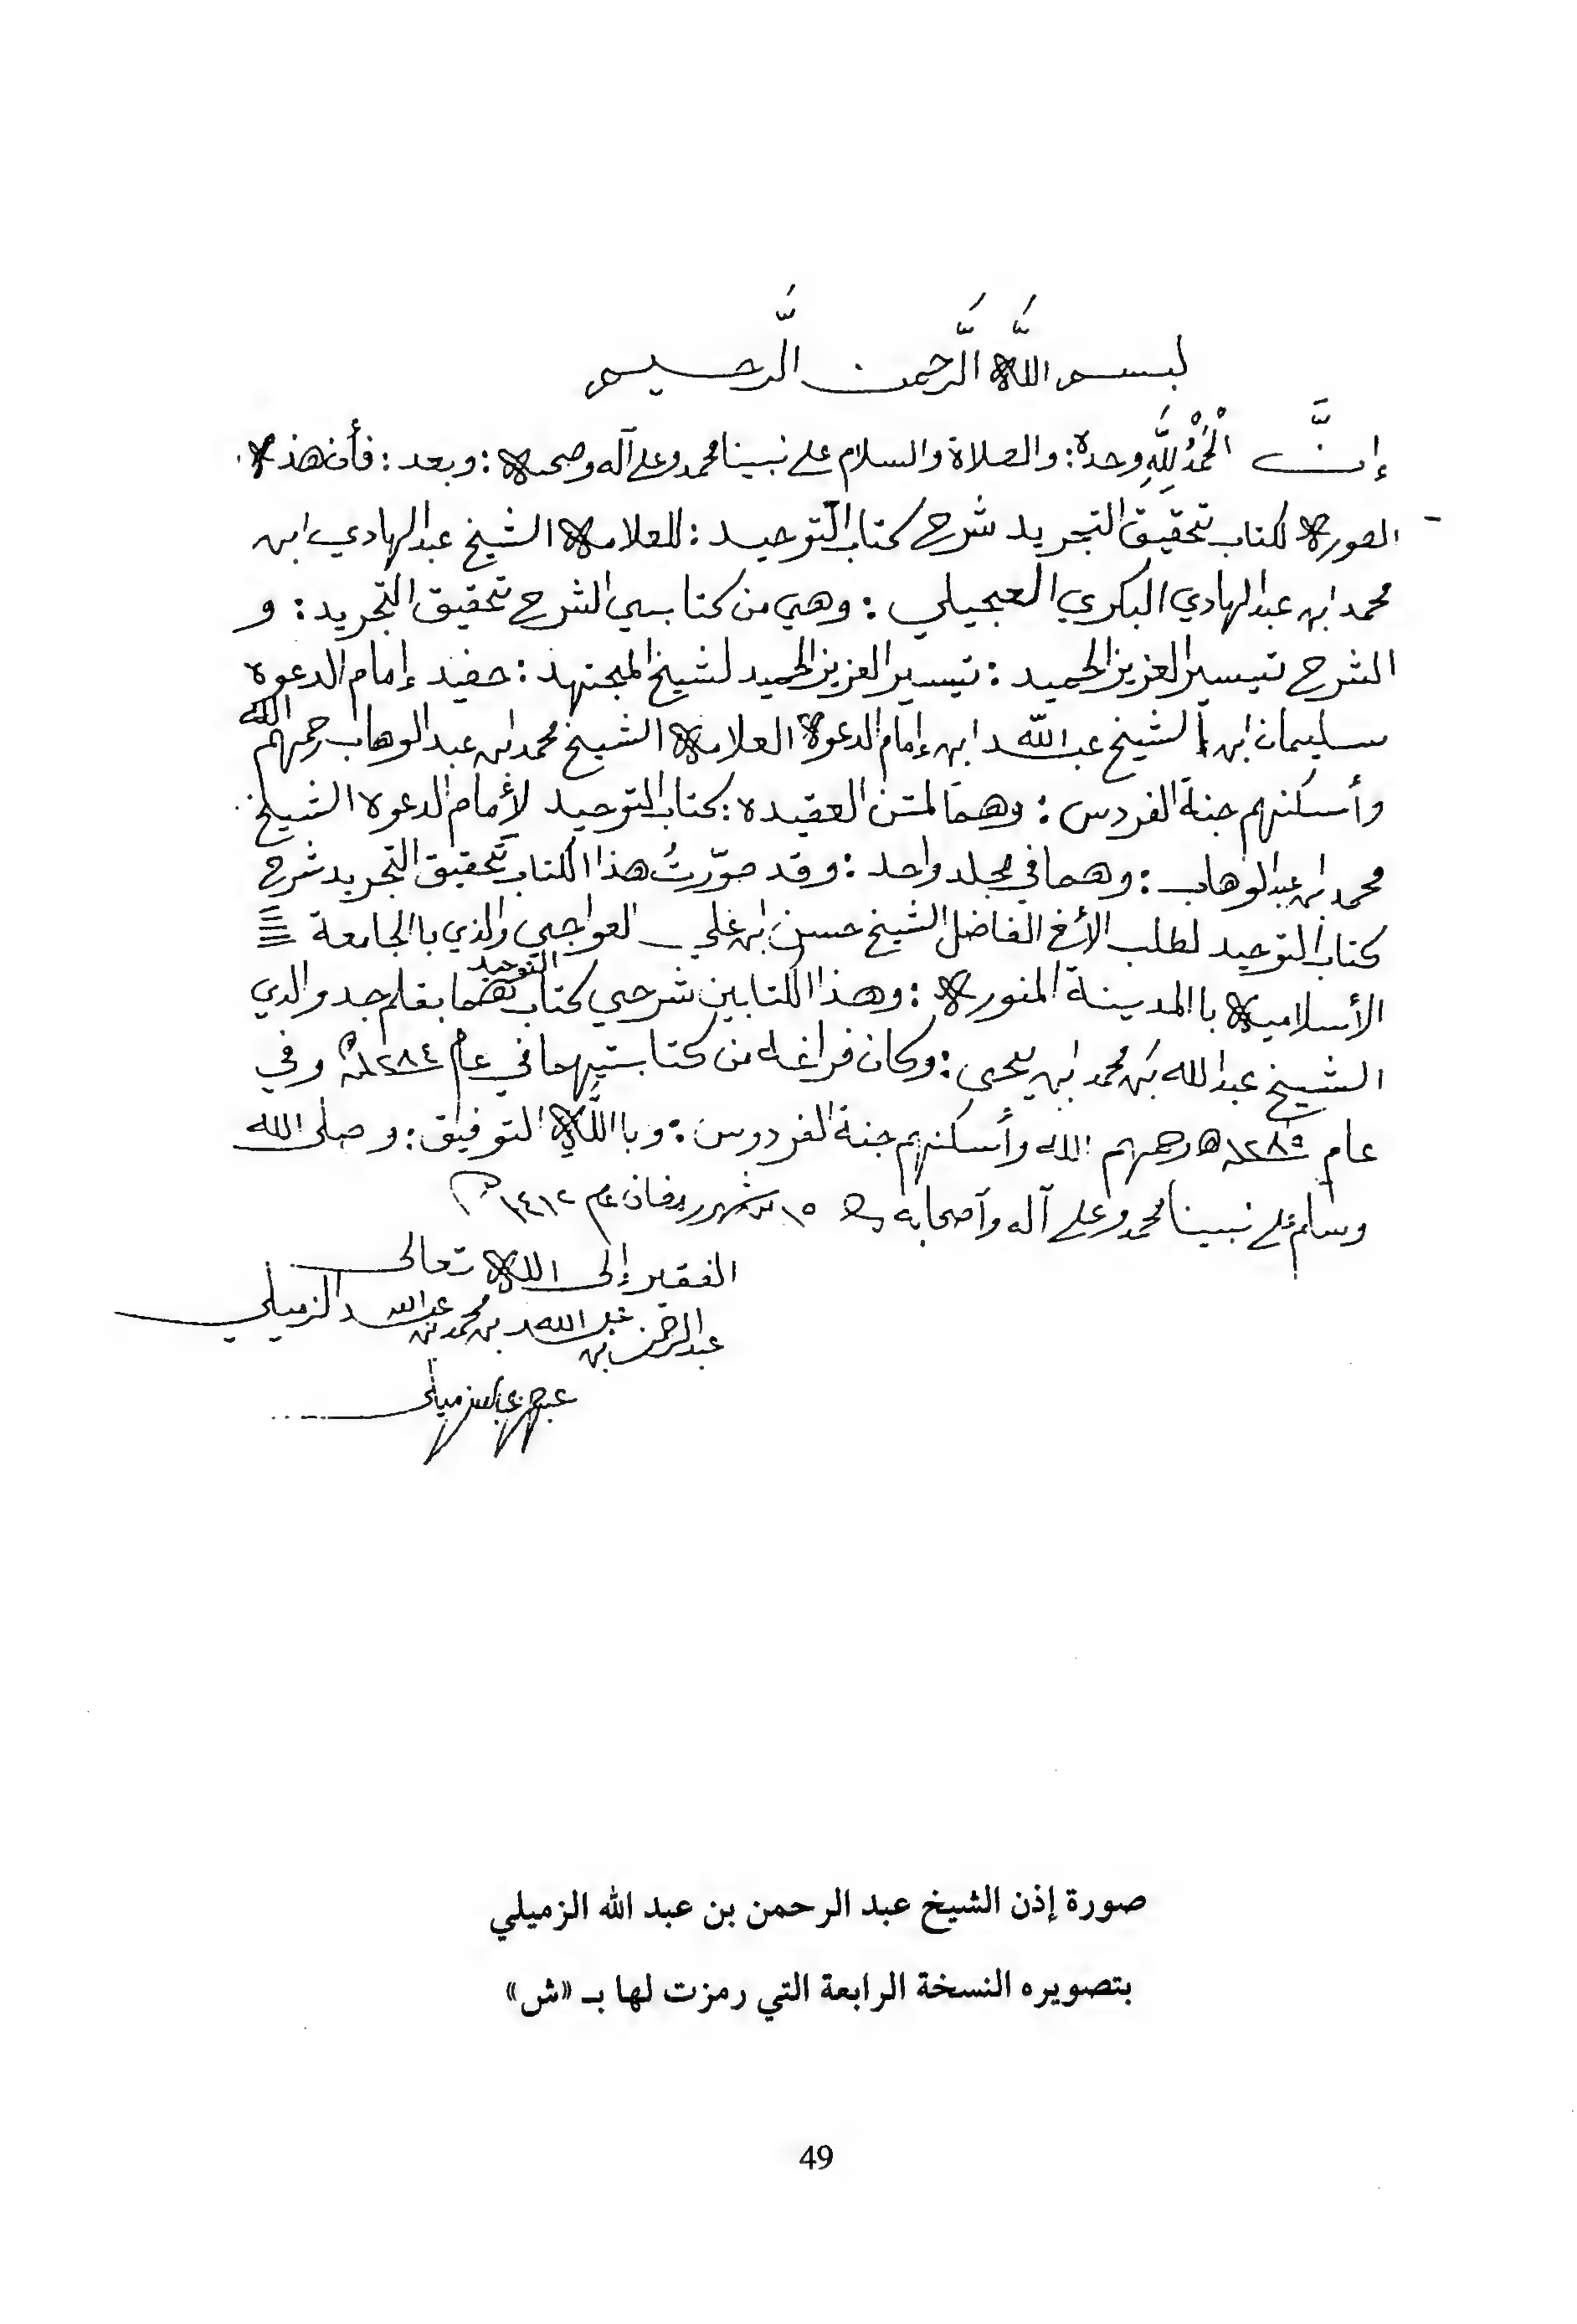 بسم اللَّه الرَّحمن الرَّحيم
إنَّ الْحَمْدُ لِلَّهِ وحده: والصلاة والسلام على نبينا محمد وعلى آله وصحبه: وبعد: فأن هذه
الصورة لكتاب تحقيق التجريد شرح كتاب التَّوحيد: للعلامة الشيخ عبدالهادي ابن
محمد ابن عبدالهادي البكري العجيلي: وهي من كتابي الشرح تحقيق التجريد: و
الشرح تيسير العزيز الحميد: تيسير العزيز الحميد لشيخ المجتهد: حفيد إمام الدعوة
سليمان ابن الشيخ عبدالله ابن إمام الدعوة العلامة الشيخ محمد ابن عبدالوهاب رحمهم الله
وأسكنهم جنة الفردس: وهما لمتن العقيده: كتاب التوحيد لأمام الدعوه الشيخ
محمد ابن عبدالوهاب: وهما في مجلد واحد: وقد صوّرتُ هذا الكتاب تحقيق التجريد شرح
كتاب التوحيد لطلب الأخ الفاضل الشيخ حسن ابن علي العواجي والذي باالجامعة
الأسلامية باالمدينة المنورة: وهذا الكتابين شرحي كتاب التوحيد هما بقلم جد والدي
الشيخ عبدالله بن محمد ابن يحيى: وكان فراغه من كتابتيهما في عام ١٢٨٤هـ وفي
عام ١٢٨٥هـ رحمهم الله وأسكنهم جنة الفردوس: وباالله التوفيق: وصلى الله
وسلم على نبينا محمد وعلى آله وآصحابه ١٥ شهر رمضان عام ١٤١٢هـ
الفقير إلى الله تعالى
عبدالرحمن بن عبدالله بن محمد بن عبدالله الزميلي
صورة إذن الشيخ عبد الرحمن بن عبد الله الزميلي
بتصويره النسخة الرابعة التي رمزت لها بـ «ش»
49